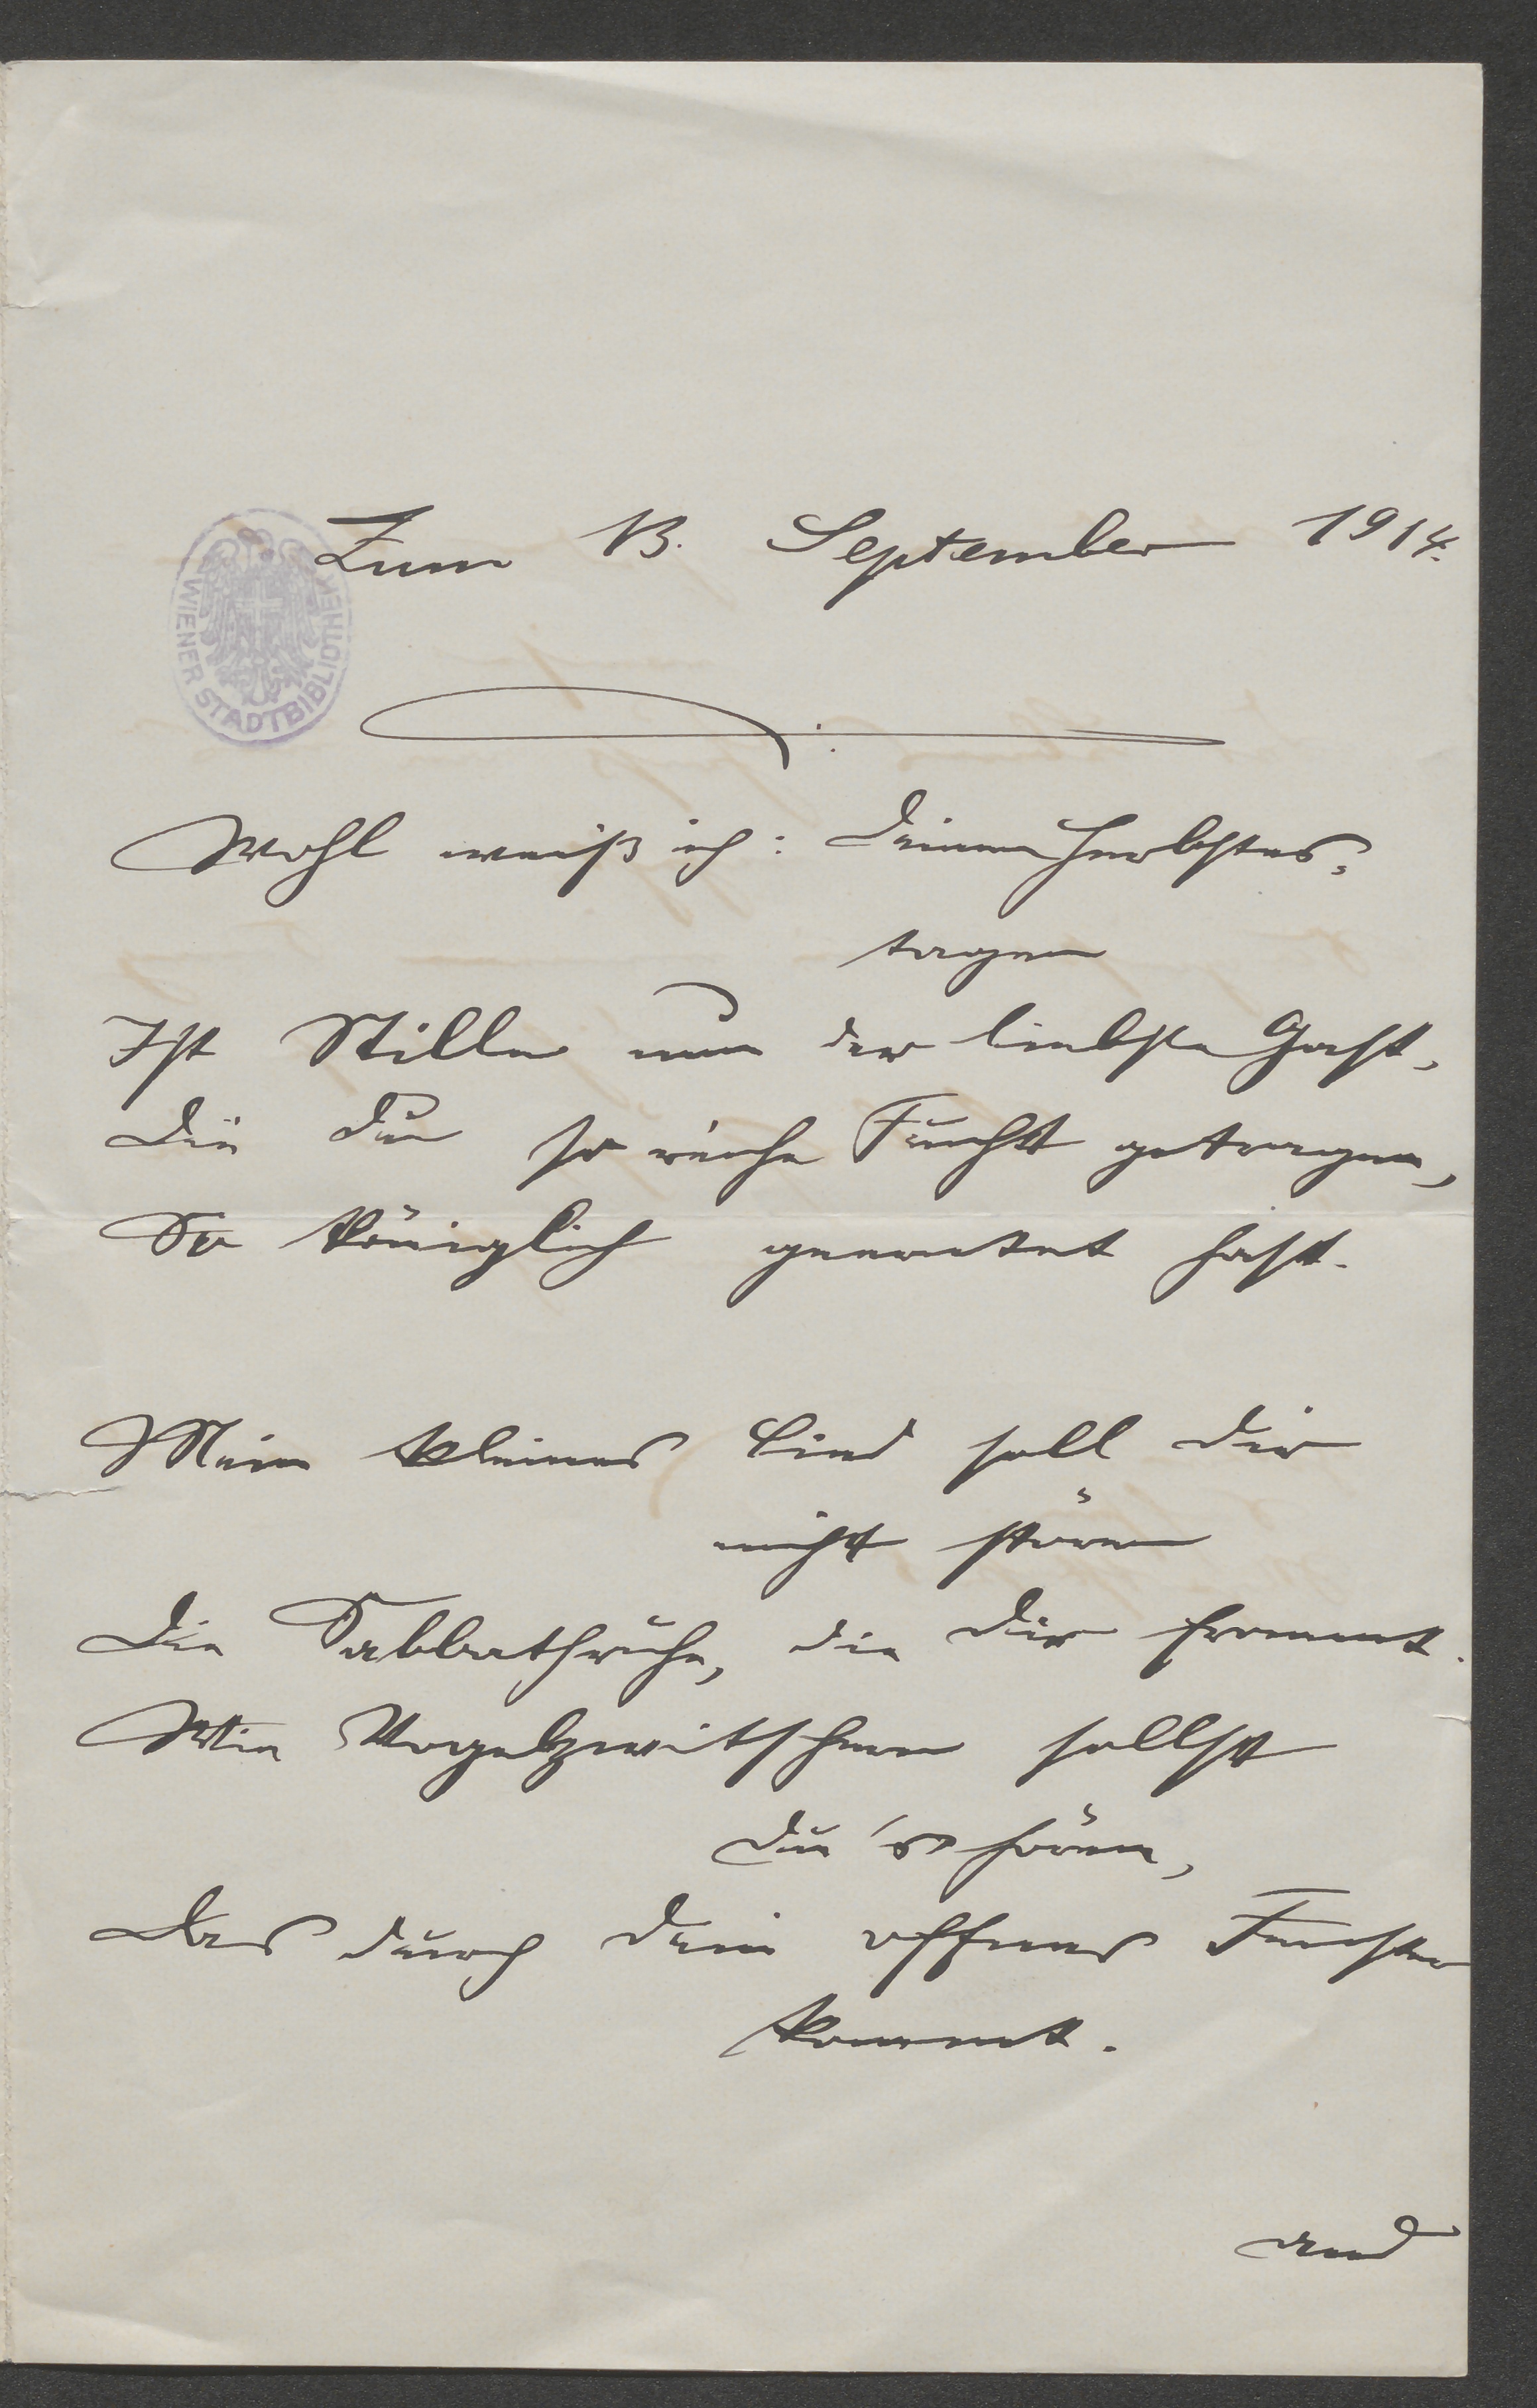 Zum 13. September 1914.
WIENER STADTBIBLIOTHEK
Wohl weiß ich: Deinen Herbstes-
tagen
Ist Stille nun der liebste Gast,
Die Du so reiche Frucht getragen,
So königlich geerntet hast.
Mein kleines Lied soll Dir
nicht stören
Die Sabbathruhe, die Dir frommt.
Wie Vogelzwitschern sollst
Du 's hören,
Das durch Dein offnes Fenster
kommt.
und